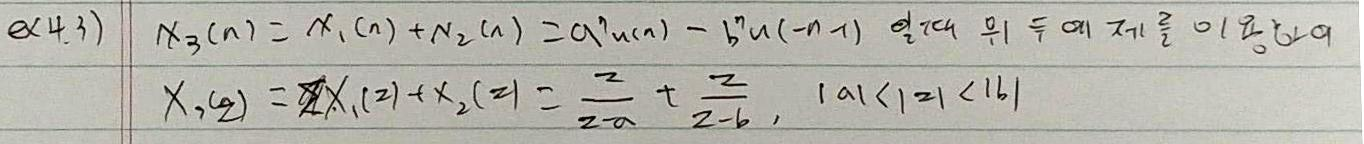 ex4.3) x₃(n) = x₁(n) + x₂(n) = aⁿu(n) - bⁿu(-n-1) 일때 위 두 예제를 이용하여
X₃(z) = X₁(z) + X₂(z) = z/(z-a) + z/(z-b), |a|<|z|<|b|